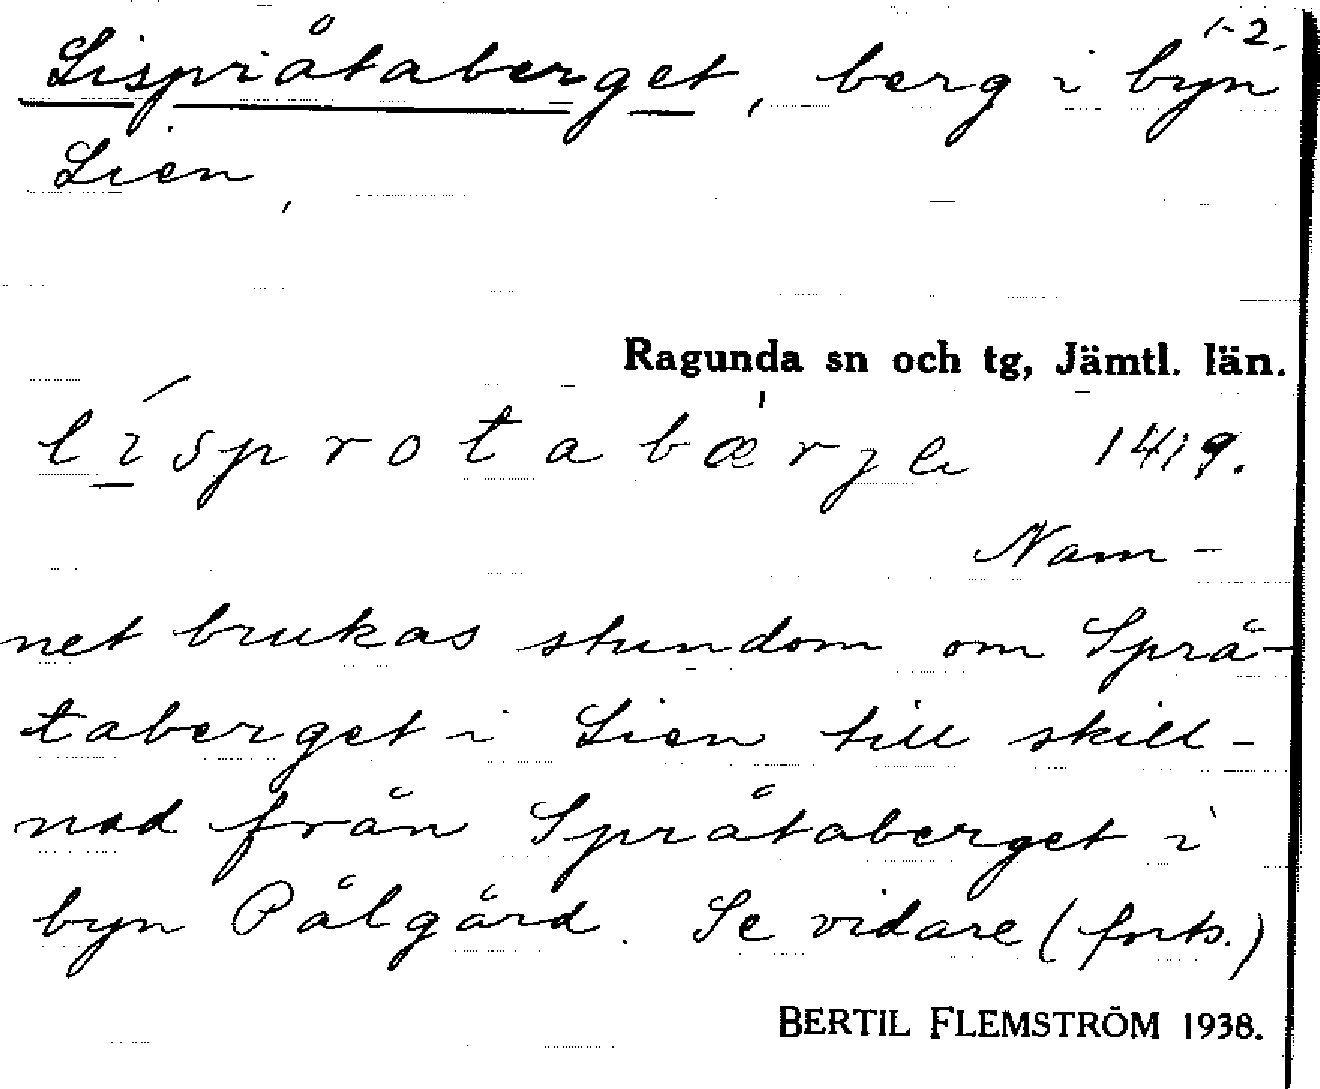 1-2.
Lispråtaberget, berg i byn
Lien,
Ragunda sn och tg, Jämtl. län.
lísprotabærje 1419.
Nam-
net brukas stundom om Språ-
taberget i Lien till skill-
nad från Språtaberget i
byn Pålgård. Se vidare (forts.)
BERTIL FLEMSTRÖM 1938.